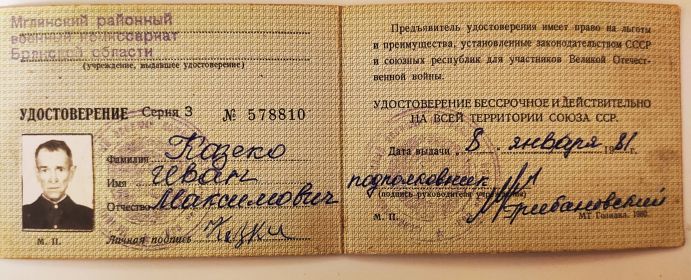 Мглинский районный
военный комиссариат
Брянской области
(учреждение, выдавшее удостоверение)
УДОСТОВЕРЕНИЕ Серия З № 578810
Фамилия Казеко
Имя Иван
Отчество Максимович
М. П. Личная подпись
Предъявитель удостоверения имеет право на льготы
и преимущества, установленные законодательством СССР
и союзных республик для участников Великой Отечест-
венной войны.
УДОСТОВЕРЕНИЕ БЕССРОЧНОЕ И ДЕЙСТВИТЕЛЬНО
НА ВСЕЙ ТЕРРИТОРИИ СОЮЗА ССР.
Дата выдачи 8 января 1981г.
подполковник
(подпись руководителя
Грибановский
М. П. МТ Гознака. 1980.